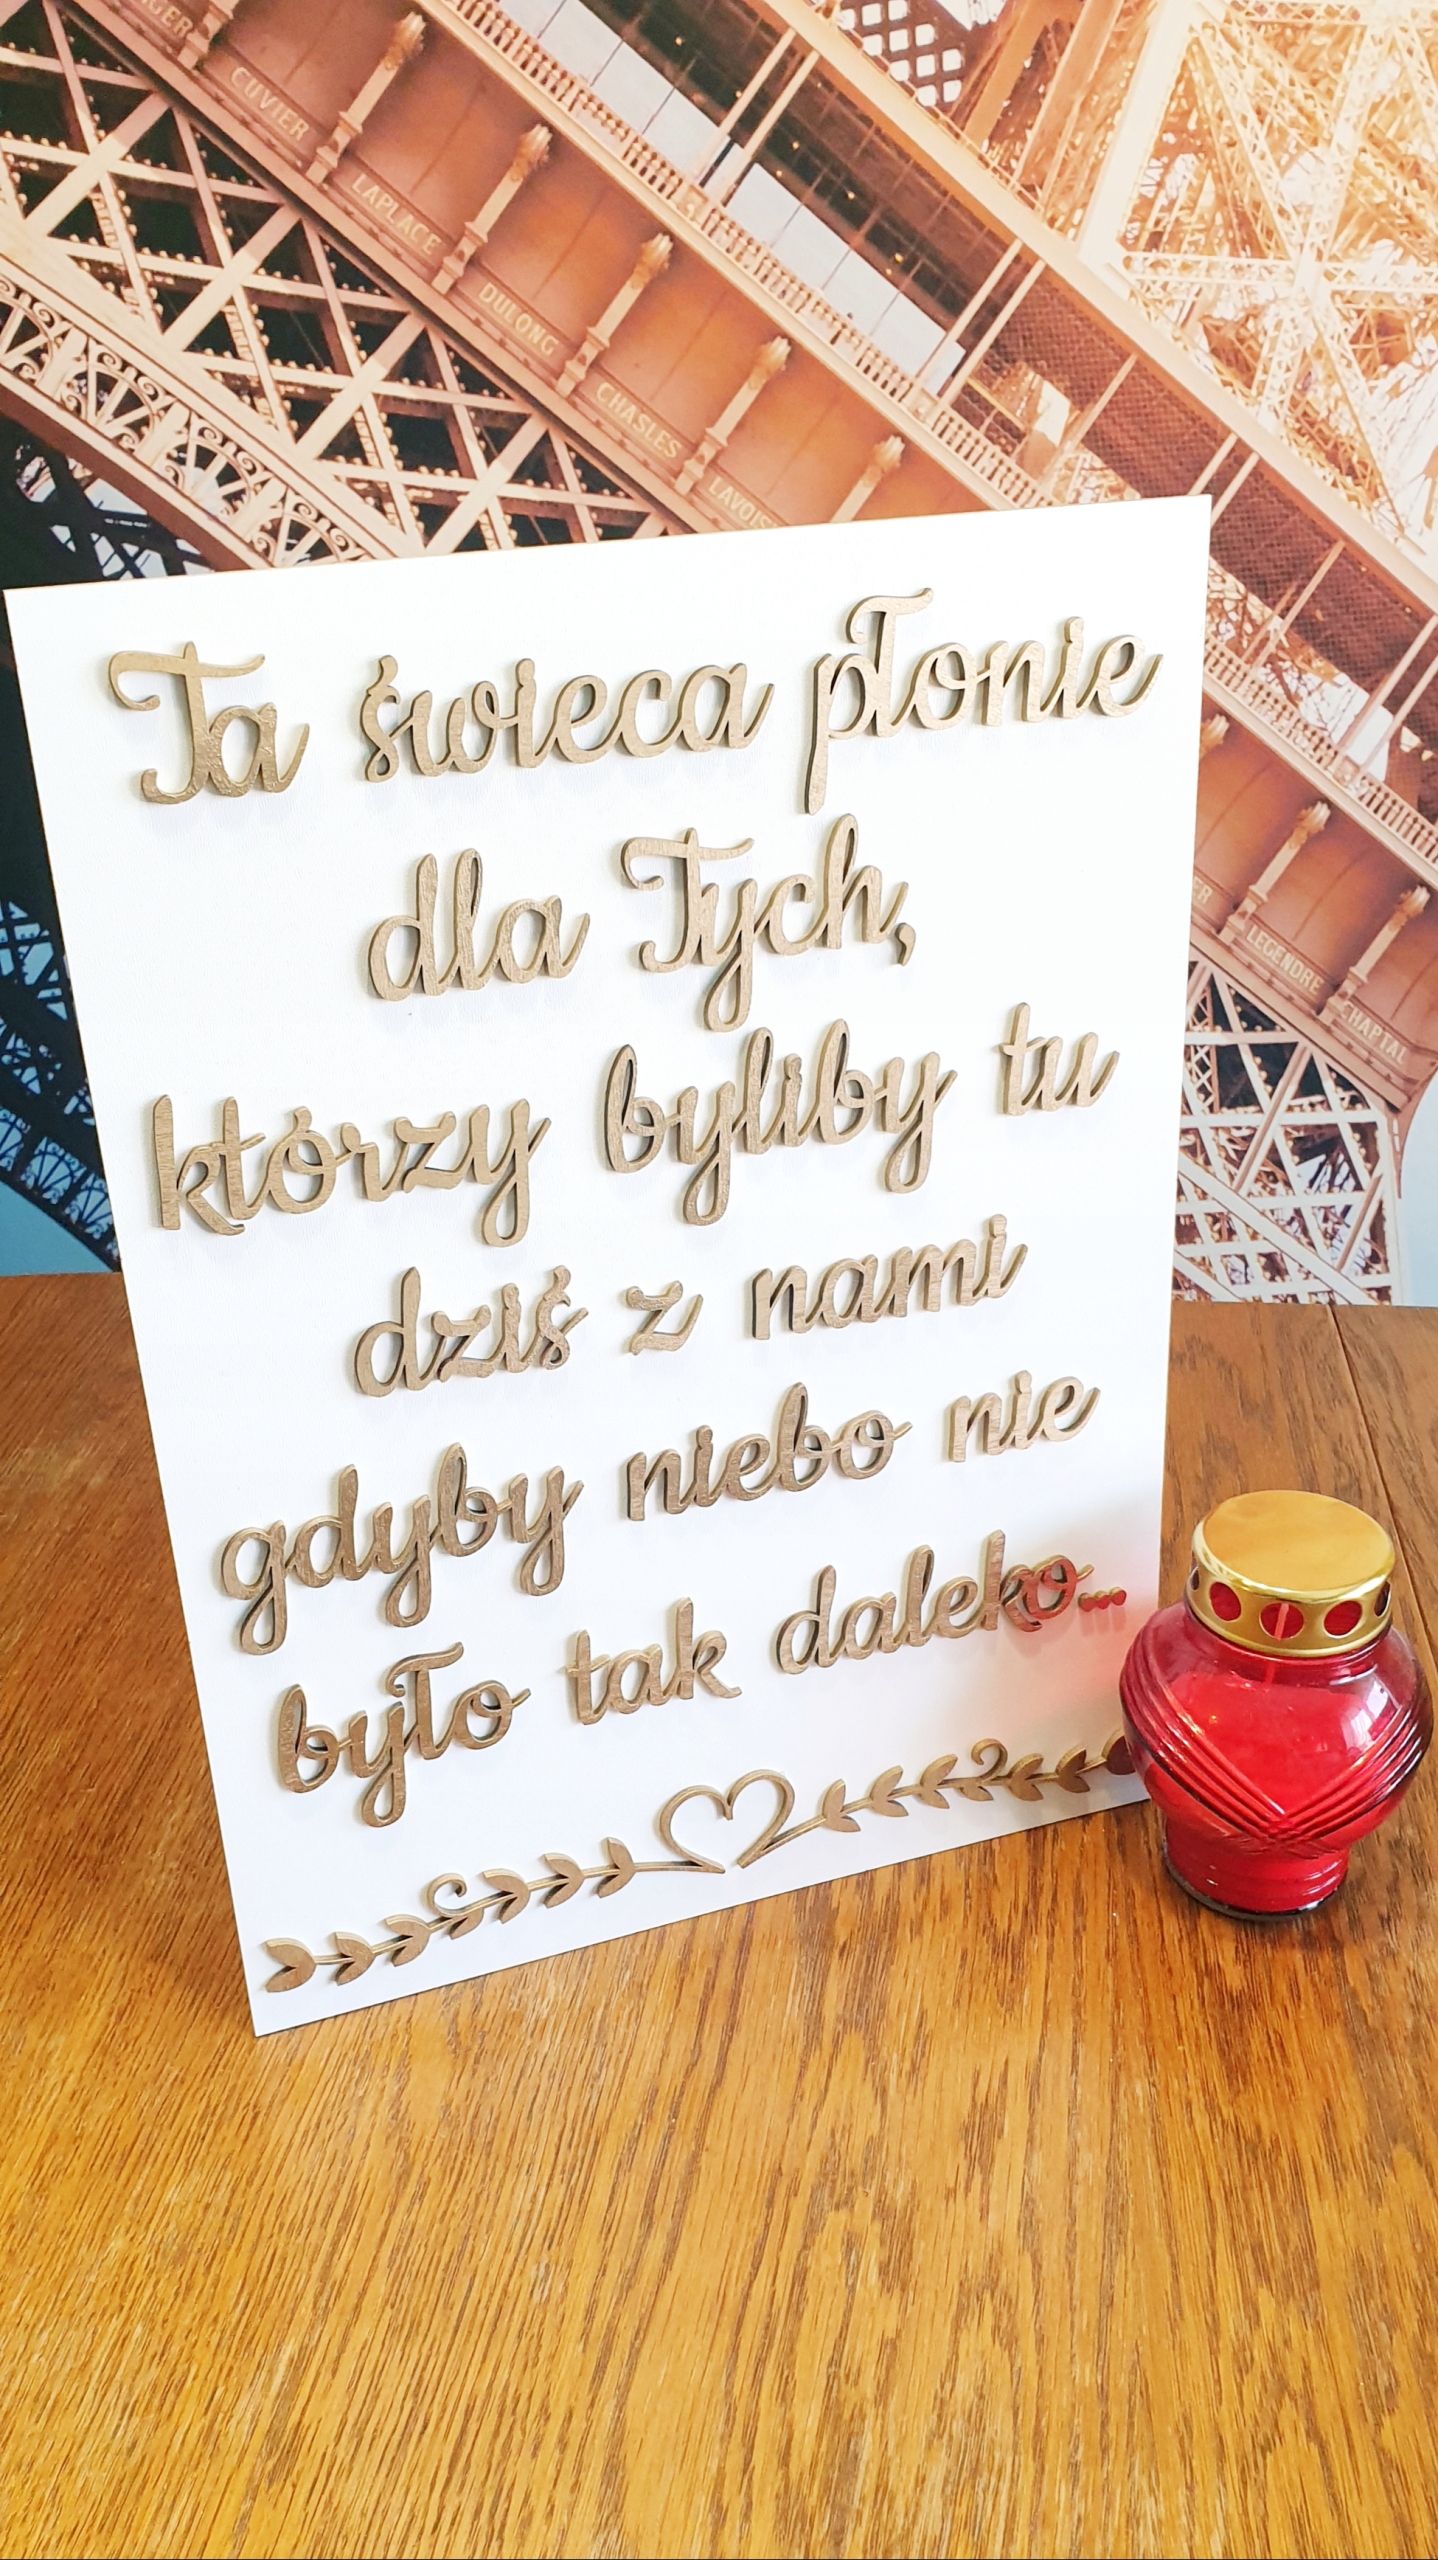 CUVIER
LAPLACE
DULONG
CHASLES
Ta świeca płonie
dla Tych,
którzy byliby tu
dziś z nami
gdyby niebo nie
było tak daleko...
LEGENDRE
CHAPTAL